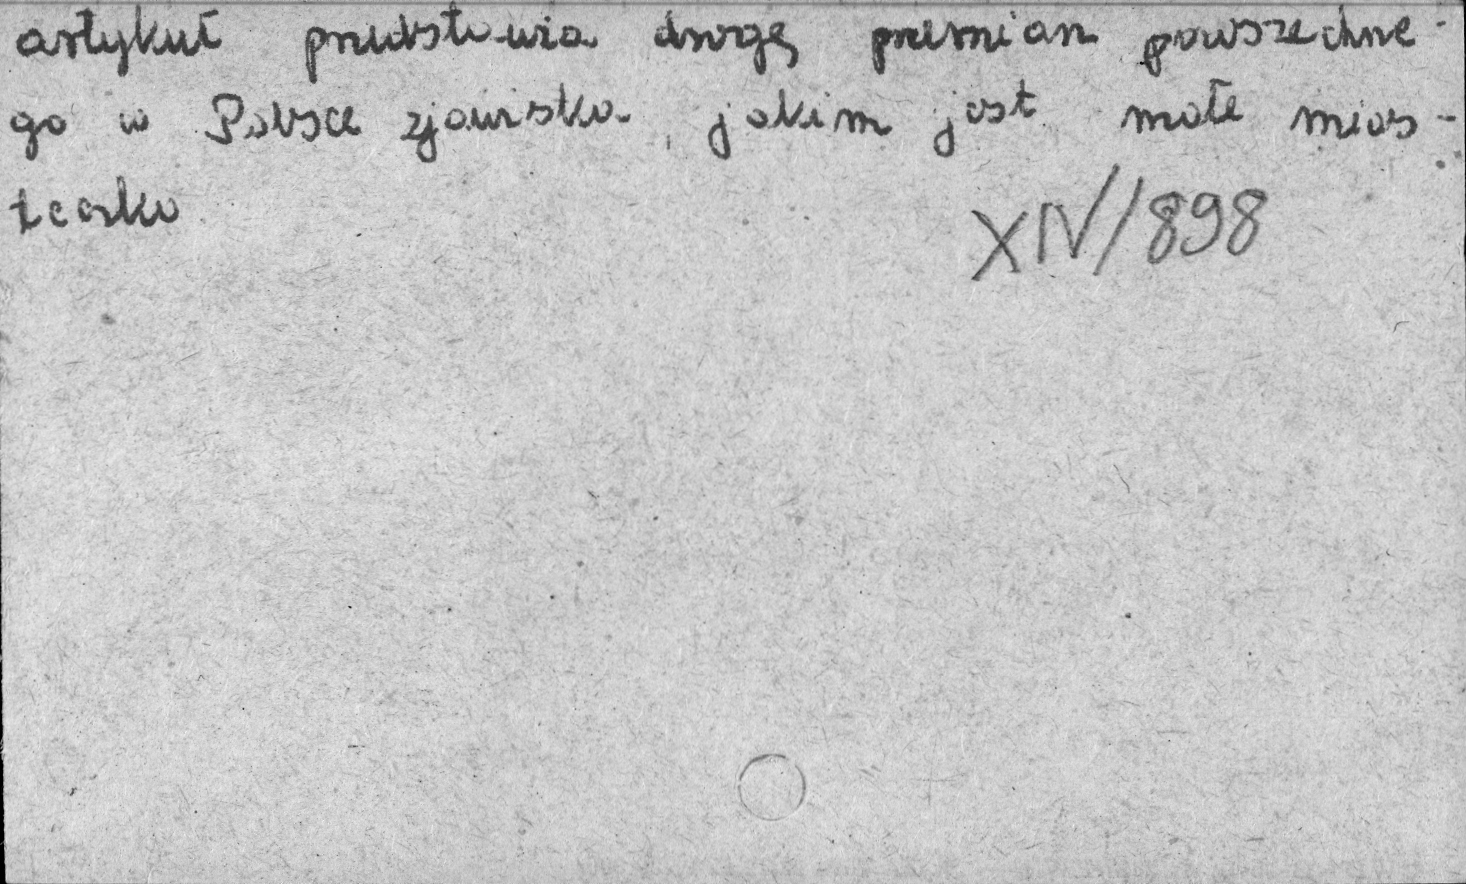 artykuł przedstawia drogę przemian powszechne-
go w Polsce zjawiska, jakim jest małe mias-
teczko
XIV/898